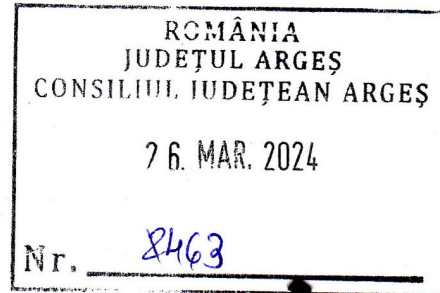 ROMÂNIA
JUDEȚUL ARGEȘ
CONSILIUL JUDEȚEAN ARGEȘ
26. MAR. 2024
Nr. 8463